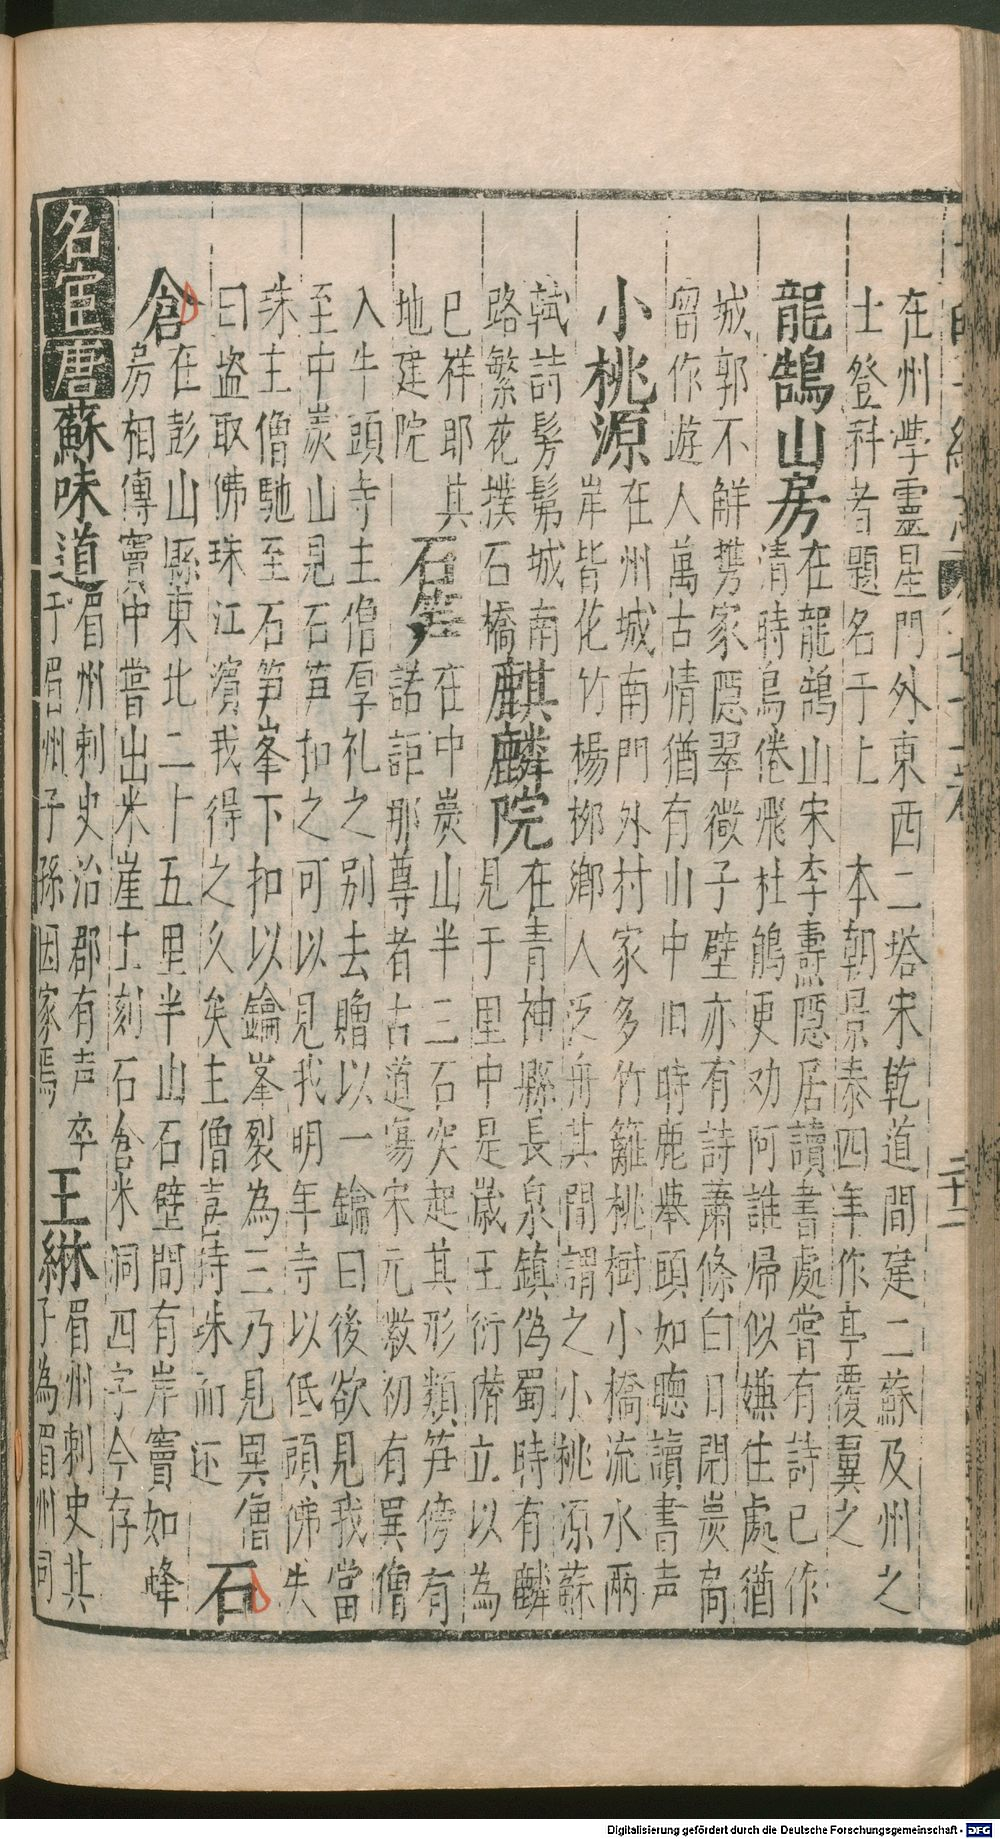 在州學靈星門外東西二塔宋乾道間建二蘇及州之
士登科者題名于上　本朝景泰四年作亭覆翼之
龍鵠山房在龍鵠山宋李燾隱居讀書處嘗有詩已作
清時烏倦飛杜鵑更劝阿誰歸似嫌住處猶
城郭不解携家隱翠微子壁亦有詩蕭條白日閉炭窗
畱作遊人萬古情猶有山中旧時鹿舉頭如聴讀書声
小桃源在州城南門外村家多竹籬桃樹小橋流水兩
岸皆花竹楊柳鄉人泛舟其間謂之小桃源蘇
軾詩髣髴城南
路繁花撲石橋
麒麟院在青神縣長泉鎮偽蜀時有麟
見于里中是歲王衍脩立以為
已祥即其
地建院
石笋在中炭山半三石突起其形類笋傍有
諾詎那尊者古道場宋元敉初有異僧
入牛頭寺主僧厚礼之别去贈以一鑰曰後欲見我當
至中炭山見石笋扣之可以見我明年寺以低頭佛失
珠主僧馳至石笋峯下扣以鑰峯裂為三乃見異僧
曰盗取佛珠江濱我得之久矣主僧喜持珠而还
石
倉在彭山縣東北二十五里半山石壁間有岸竇如蜂
房相傳竇中嘗出米崖上刻石倉米洞四字今存
名宦唐蘇味道眉州刺史治郡有声卒
于眉州子孫因家焉
王綝眉州刺史其
子為眉州司
Digitalisierung gefördert durch die Deutsche Forschungsgemeinschaft - DFG